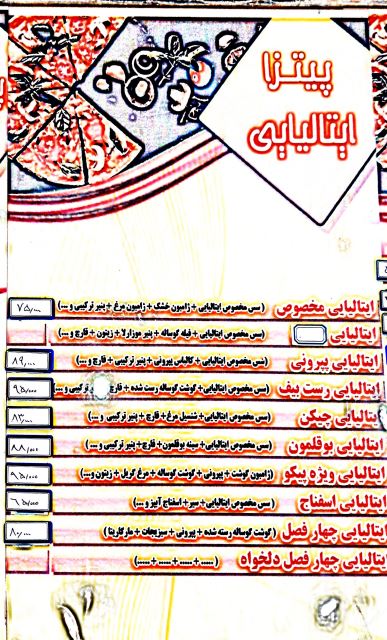 پیتزا
ایتالیایی
ایتالیایی مخصوص (سس مخصوص ایتالیایی + ژامبون خشک + ژامبون مرغ + پنیر ترکیبی و ...) ۷۵,۰۰۰
ایتالیایی (سس مخصوص ایتالیایی + فیله گوساله + پنیر موزارلا + زیتون + قارچ و ...)
ایتالیایی پپرونی (سس مخصوص ایتالیایی + کالباس پپرونی + پنیر ترکیبی + قارچ و ...) ۸۹,۰۰۰
ایتالیایی رست بیف (سس مخصوص ایتالیایی + گوشت گوساله رست شده + قارچ ترکیبی و ...) ۹۵,۰۰۰
ایتالیایی چیکن (سس مخصوص ایتالیایی + فیله مرغ + قارچ + پنیر ترکیبی و ...) ۸۳,۰۰۰
ایتالیایی بوقلمون (سس مخصوص ایتالیایی + سینه بوقلمون + قارچ + پنیر ترکیبی و ...) ۸۸,۰۰۰
ایتالیایی ویژه پیکو (ژامبون گوشت + پپرونی + گوشت گوساله + مرغ گریل + زیتون و...) ۹۵,۰۰۰
ایتالیایی اسفناج (سس مخصوص ایتالیایی + سیر + اسفناج آبپز و ...) ۶۵,۰۰۰
ایتالیایی چهار فصل (گوشت گوساله رسته شده + پپرونی + سبزیجات + مارگاریتا) ۸۰,۰۰۰
ایتالیایی چهار فصل دلخواه (..... + ..... + ..... + .....)